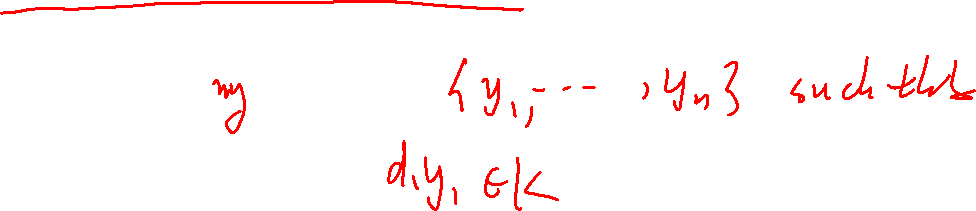 {y₁, --- , yₙ} such that
d₁y₁ ∈ K